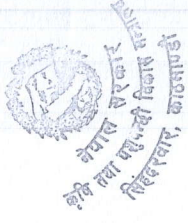 नेपाल सरकार
कृषि तथा पशुपन्छी विकास मन्त्रालय
सिंहदरबार, काठमाडौं